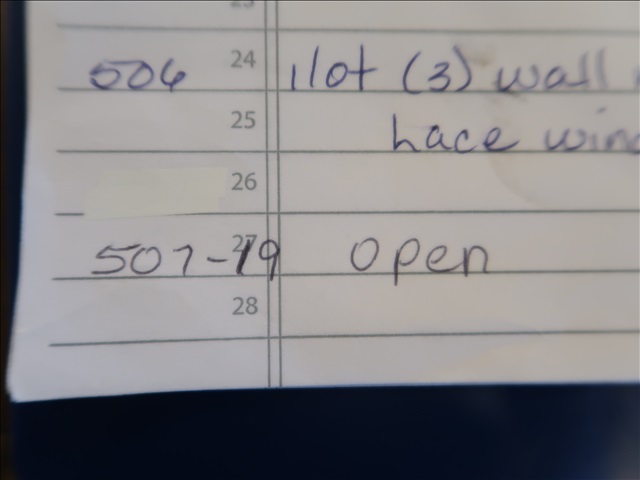 506 24 1 lot (3) wall
25 hace wind
26
507-19 27 open
28